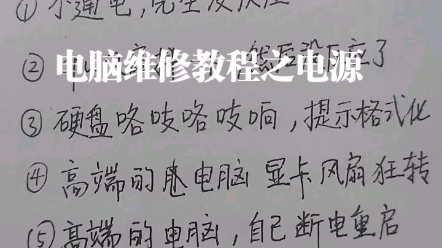 ① 不通电，完全没反应
② 然后没反应了
电脑维修教程之电源
③ 硬盘咯吱咯吱响，提示格式化
④ 高端的电脑 显卡风扇狂转
⑤ 高端的电脑，自己断电重启